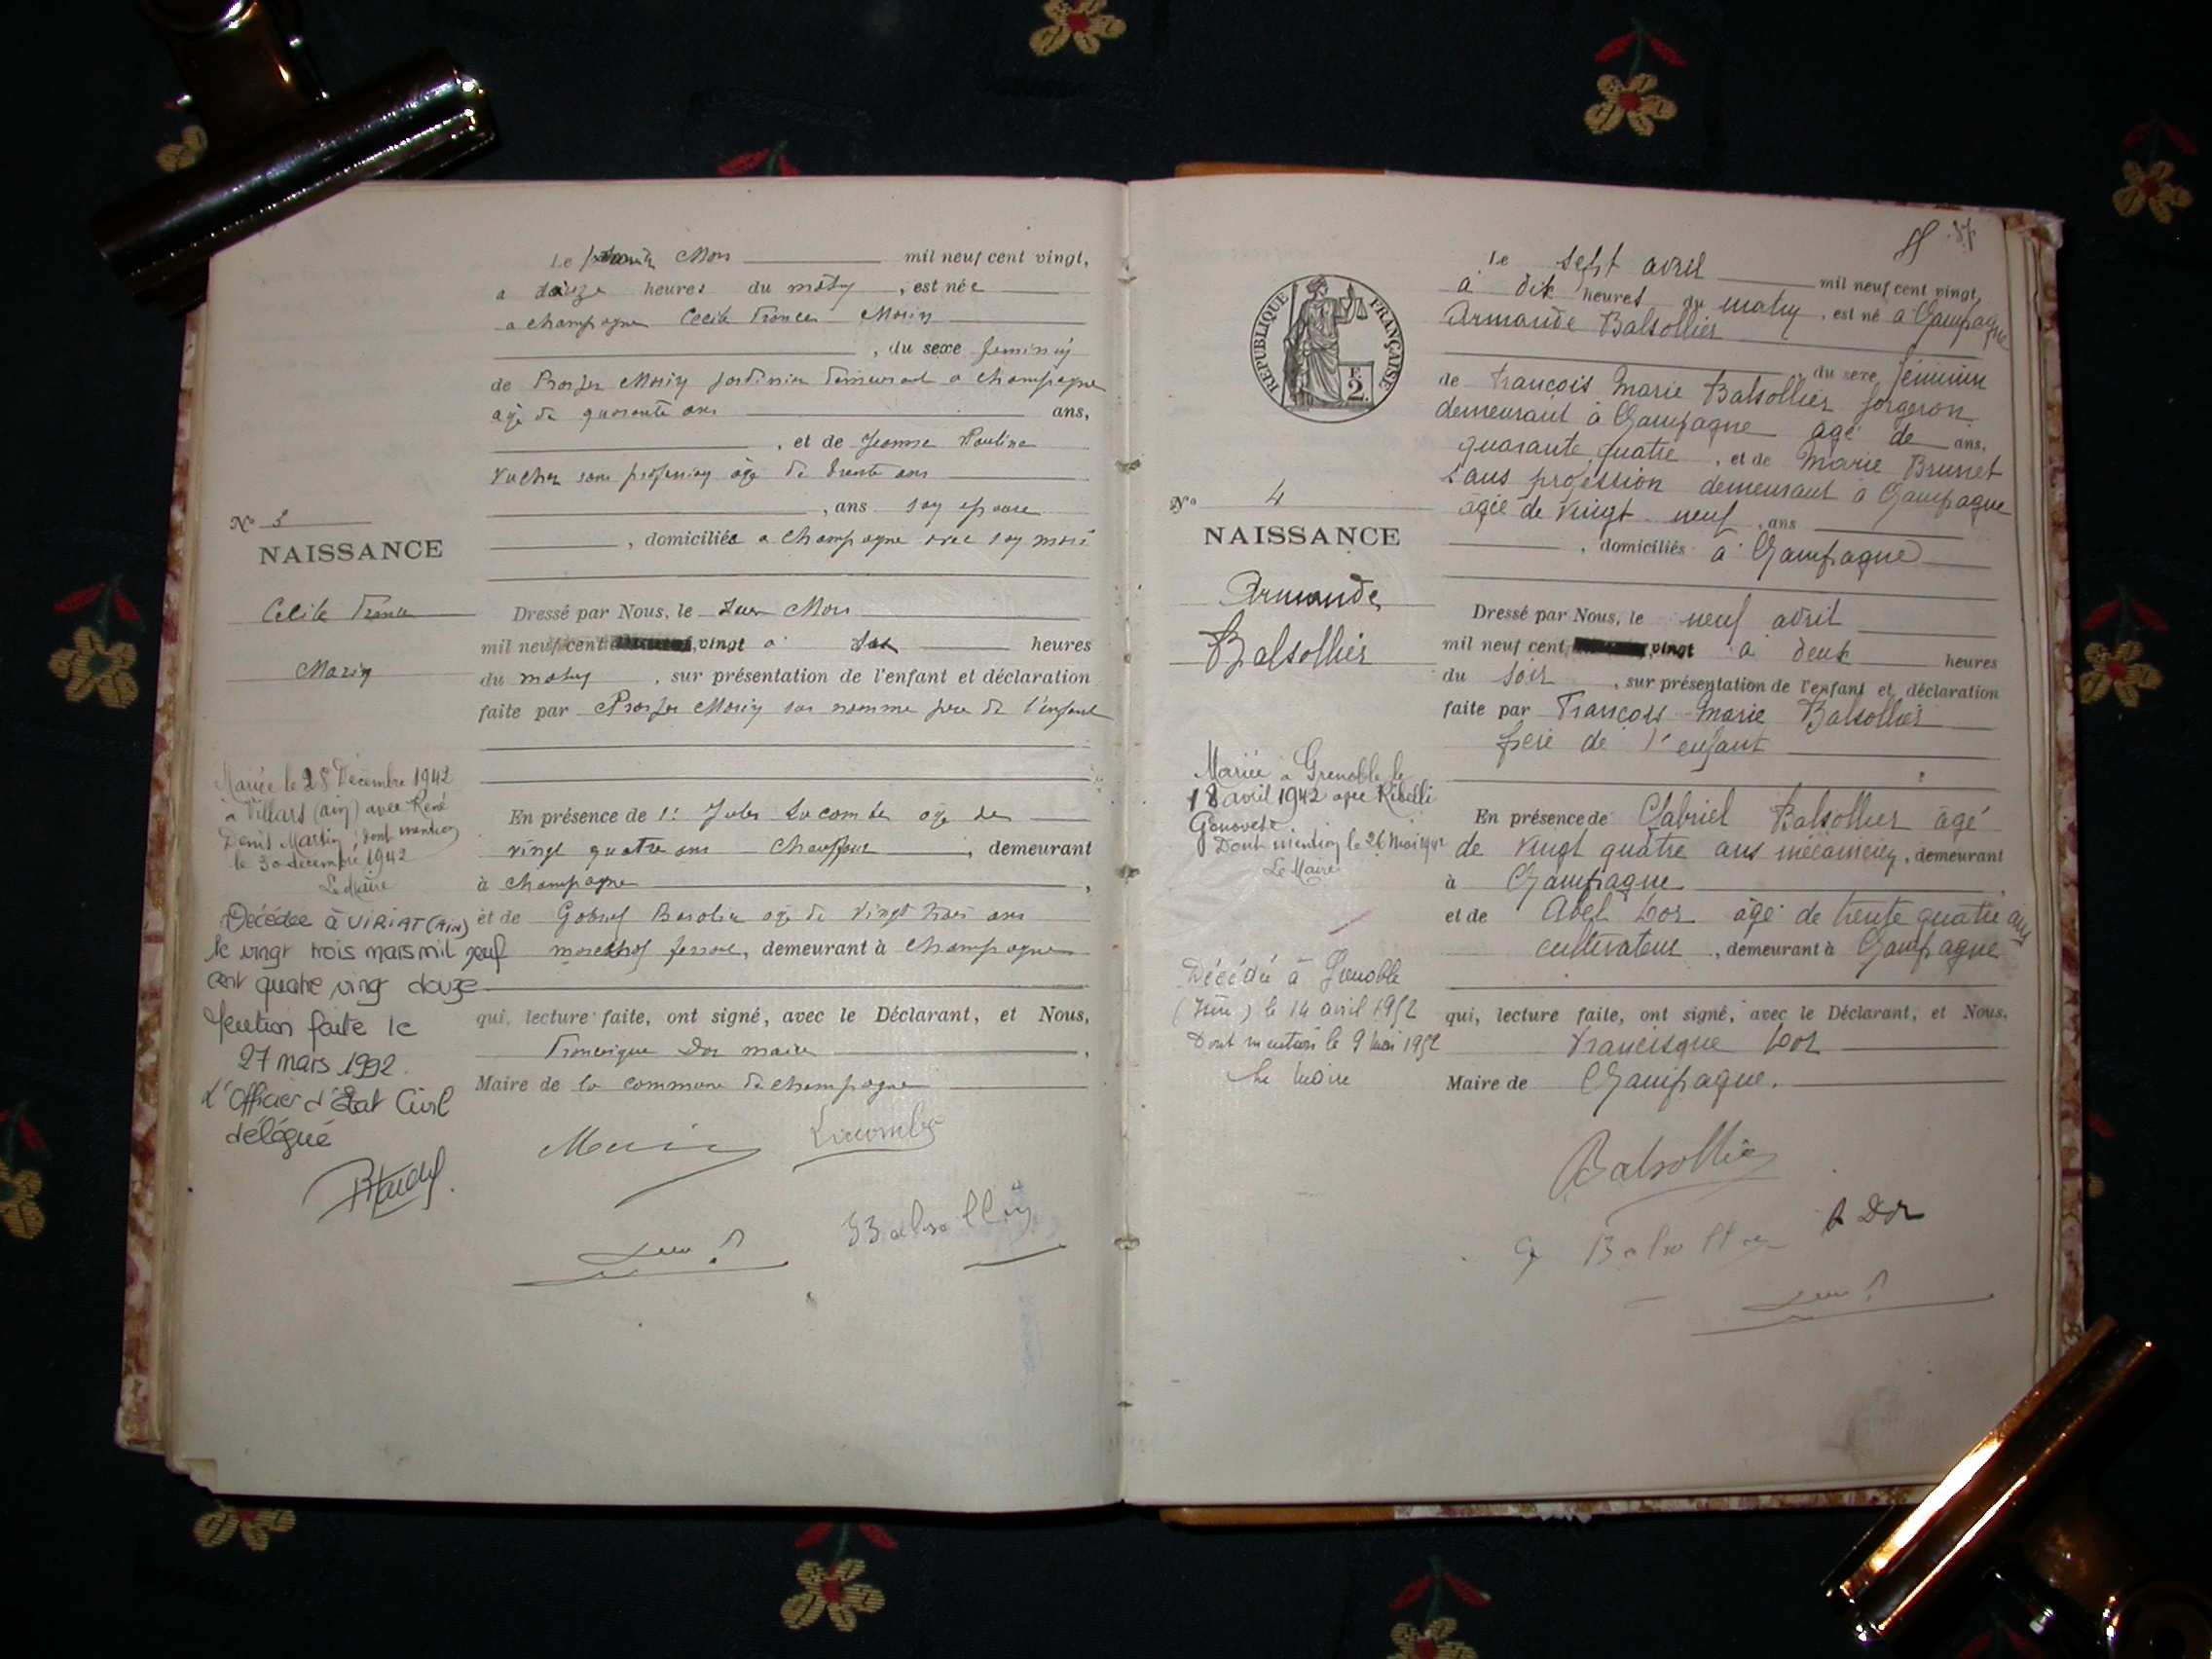 Le premier Mars mil neuf cent vingt,
a heures du matin, est née
a champagne Cecile France Morin
, du sexe feminin
de Prosper Morin jardinier demeurant a champagne
agé de quarante ans ans,
, et de Jeanne Pauline
Vucher sans profession âgé de trente ans
, ans son epouse
, domiciliée a champagne avec son mari
Dressé par Nous, le deux Mars
mil neuf cent vingt a heures
du matin, sur présentation de l'enfant et déclaration
faite par Prosper Morin sus nommé pere de l'enfant
En présence de 1: Jules Lacombe age de
vingt quatre ans chauffeur, demeurant
à champagne,
et de Gabriel agé de vingt trois ans
marechal ferrant, demeurant à champagne
qui, lecture faite, ont signé, avec le Déclarant, et Nous,
Francisque Dor maire,
Maire de la commune de champagne
Morin Lacombe
Balsollier
No 3
NAISSANCE
Cecile France
Morin
Mariée le 28 Décembre 1942
à Villars (ain) avec René
Denis Martin, dont mention
le 30 décembre 1942
Le Maire
Décédée à VIRIAT (Ain)
le vingt trois mars mil neuf
cent quatre vingt douze
Mention faite le
27 mars 1992.
L'Officier d'État Civil
délégué
Le sept avril mil neuf cent vingt,
à dix heures du matin, est né à Champagne
Armande Balsollier
du sexe féminin
de François Marie Balsollier forgeron
demeurant à Champagne agé de ans,
quarante quatre, et de Marie Brunet
sans profession demeurant à Champagne
agée de vingt neuf, ans
, domiciliés à Champagne
Dressé par Nous, le neuf avril
mil neuf cent vingt à deux heures
du soir, sur présentation de l'enfant et déclaration
faite par François Marie Balsollier
père de l'enfant
En présence de Gabriel Balsollier âgé
de vingt quatre ans mécanicien, demeurant
à Champagne,
et de Abel Dor âgé de trente quatre ans
cultivateur, demeurant à Champagne
qui, lecture faite, ont signé, avec le Déclarant, et Nous,
Francisque Dor
Maire de Champagne.
Balsollier
G Balsollier A Dor
RÉPUBLIQUE FRANÇAISE
F. 2.
No 4
NAISSANCE
Armande
Balsollier
Mariée à Grenoble le
18 avril 1942 avec Ribelli
Genovese
Dont mention le 26 mai 1942
Le Maire
Décédée à Grenoble
(Isère) le 14 avril 1952
Dont mention le 9 Mai 1952
Le Maire